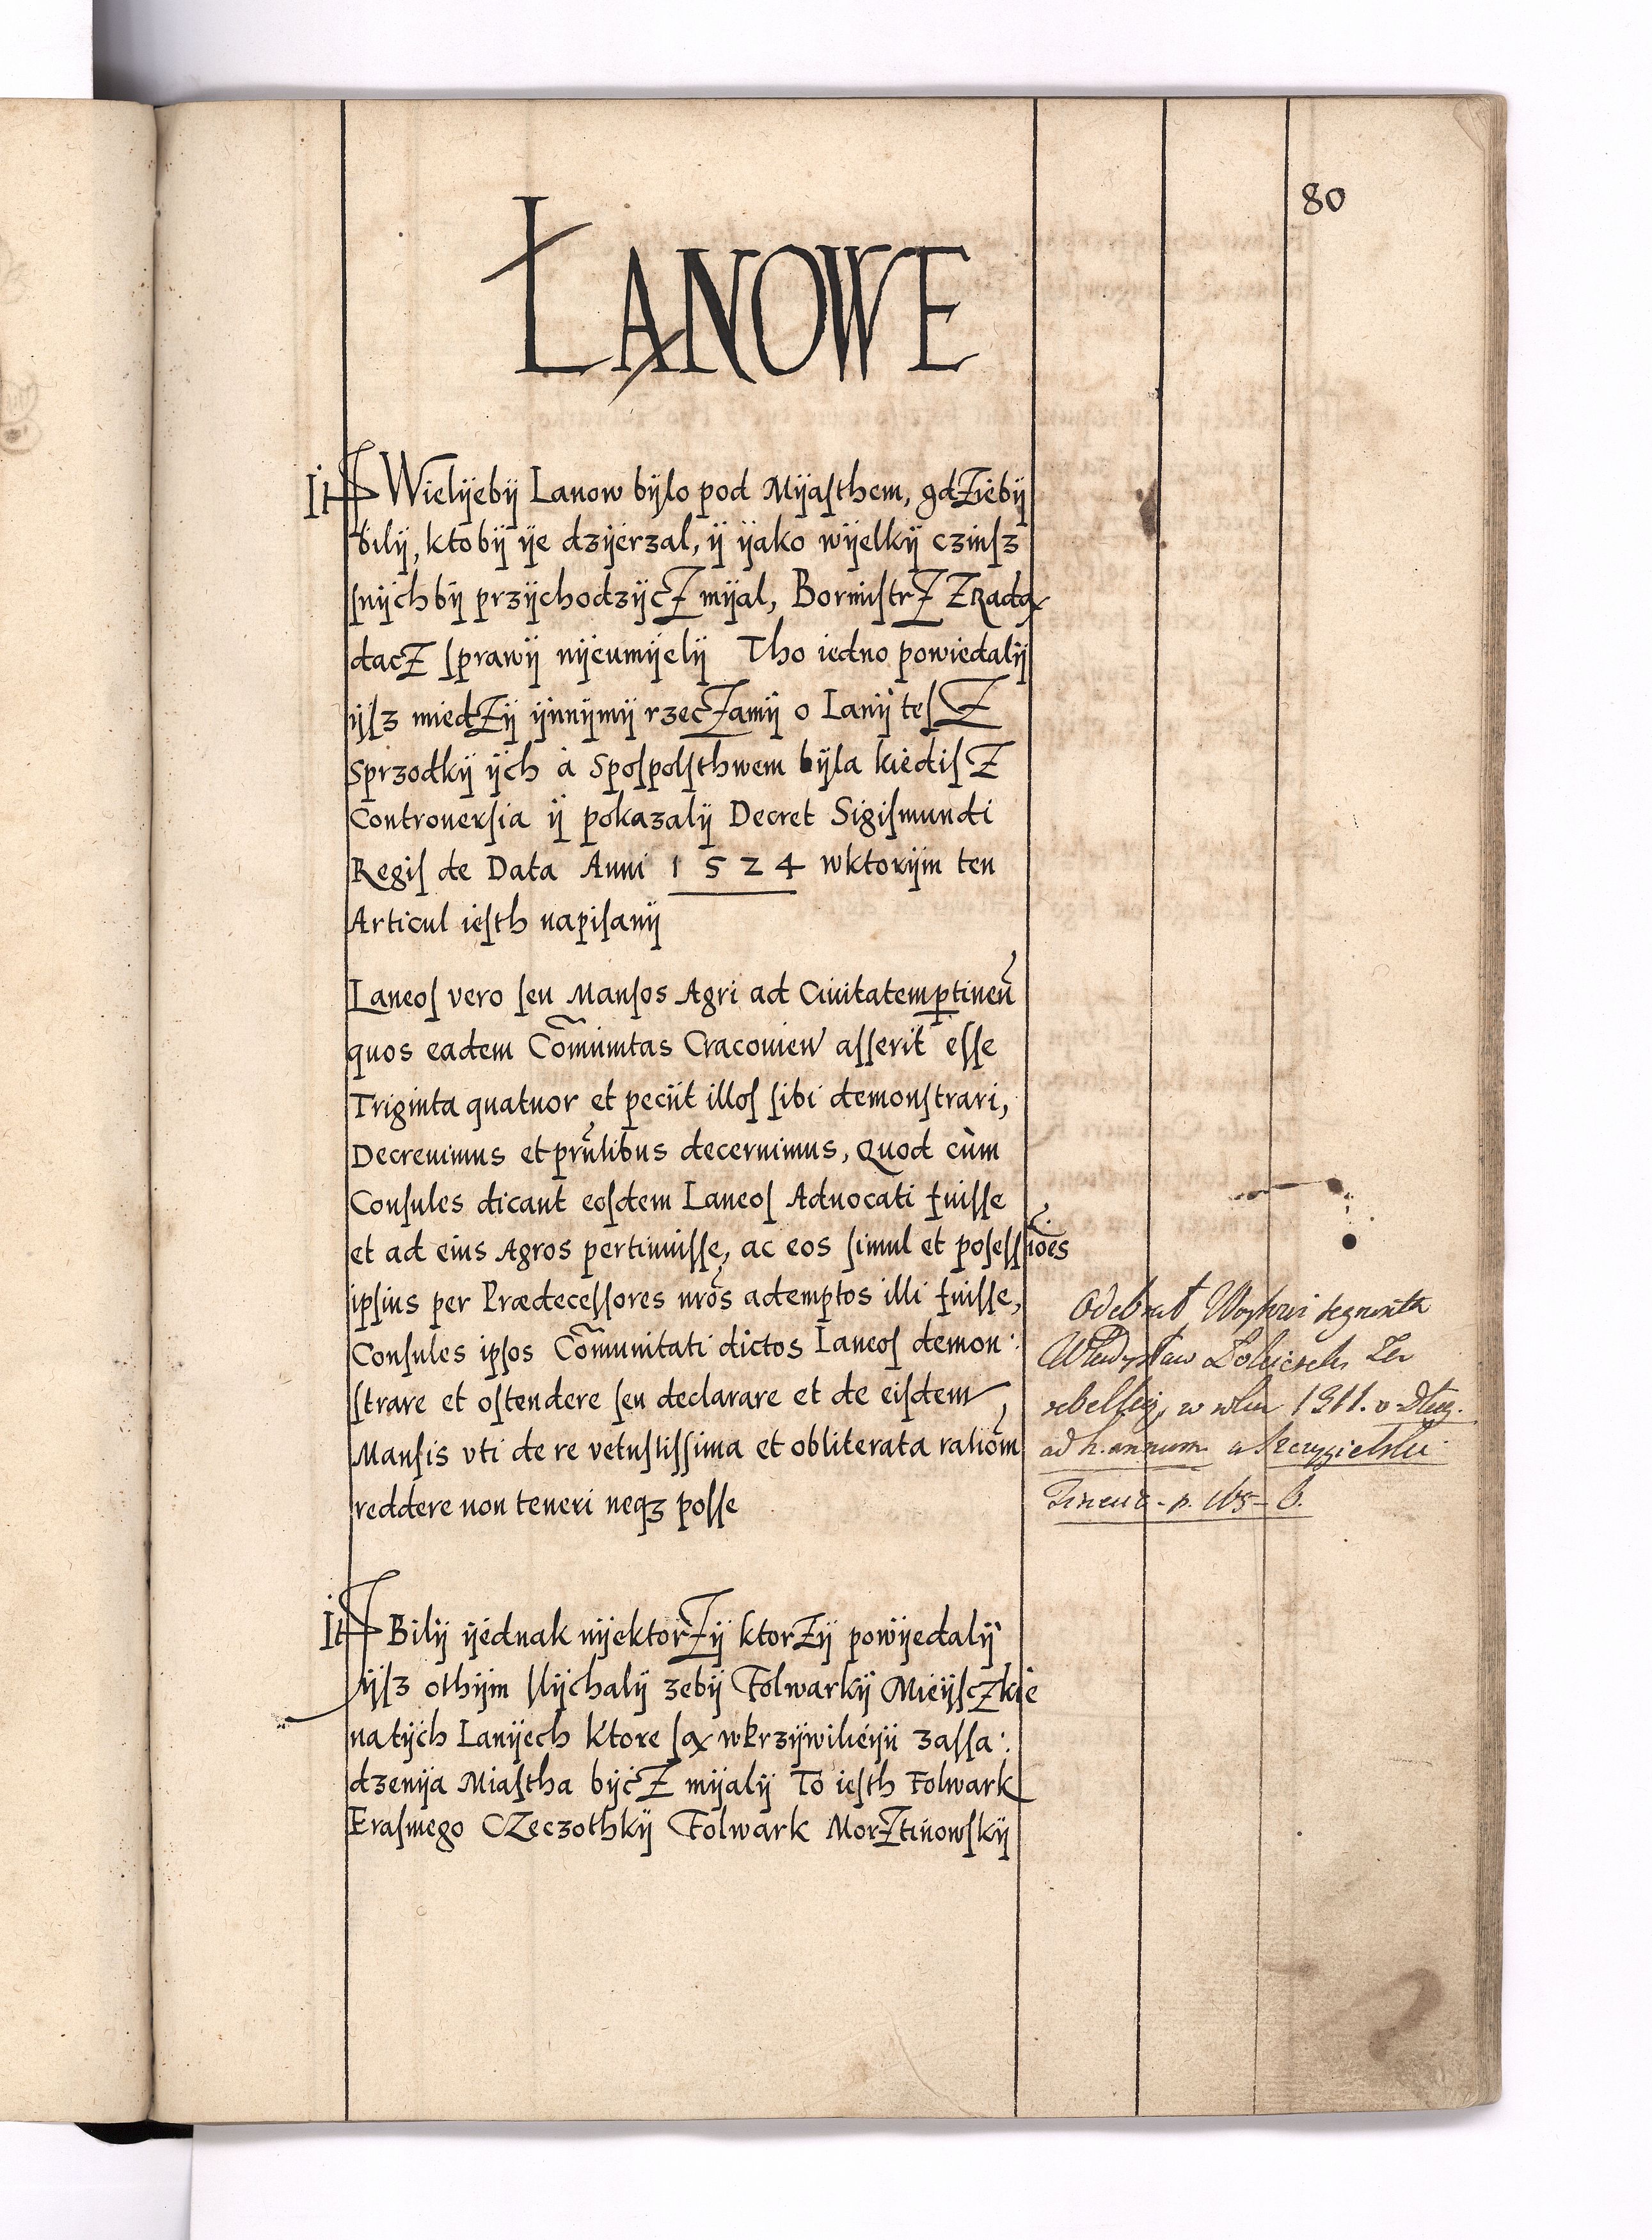 80
ŁANOWE
It Wielÿebÿ Lanow bÿlo pod Mÿaſthem, gdZiebÿ
bilÿ, ktobÿ ÿe dzÿerzal, ÿ ÿako wÿelkÿ czinſz
ſnÿchbÿ przÿchodzÿcZ mÿal, BormiſtrZ ZRadą
dacZ ſprawÿ nÿeumÿelÿ Tho iedno powiedalÿ
ÿſz miedZÿ ÿnnÿmÿ rzecZamÿ o Lanÿ teſZ
Sprzodkÿ ÿch à Spoſpolſthwem bÿla kiediſZ
Controuerſia ÿ pokazalÿ Decret Sigiſmundi
Regiſ de Data Anni 1524 wktorÿm ten
Articul ieſth napiſanÿ
Laneoſ vero ſeu Manſos Agri ad Ciuitatem ꝑtineñ
quos eadem Com̃unitas Cracouien̄ aſſerit eſſe
Triginta quatuor et peciit illoſ ſibi demonſtrari,
Decreuimus et pr̃ñtibus decernimus, Quod cùm
Conſules dicant eoſdem Laneoſ Aduocati fuiſſe
et ad eius Agros pertinuiſſe, ac eos ſimul et poſeſſiões
ipſius per Prædeceſſores nr̃os ademptos illi fuiſſe,
Conſules ipſos Com̃unitati dictos Laneoſ demon:
ſtrare et oſtendere ſeu declarare et de eiſdem
Manſis vti de re vetuſtiſſima et obliterata ratiõm
reddere non teneri neqʒ poſſe
Odebrał
Władysław Łokietek Za
rebellią, w roku 1311. v Dług.
ad h. annum a
p. 165 - b.
It Bilÿ ÿednak nÿektorZÿ ktorZÿ powÿedalÿ
ÿſz othÿm ſlÿchalÿ zebÿ Folwarkÿ MieÿſcZkie
natÿch Lanÿech Ktore ſą wPrzÿwilieÿu zaſſa:
dzenÿa Miaſtha bÿcZ mÿalÿ To ieſth Folwark
Eraſmego CZeczothkÿ Folwark MorZtinowſkÿ